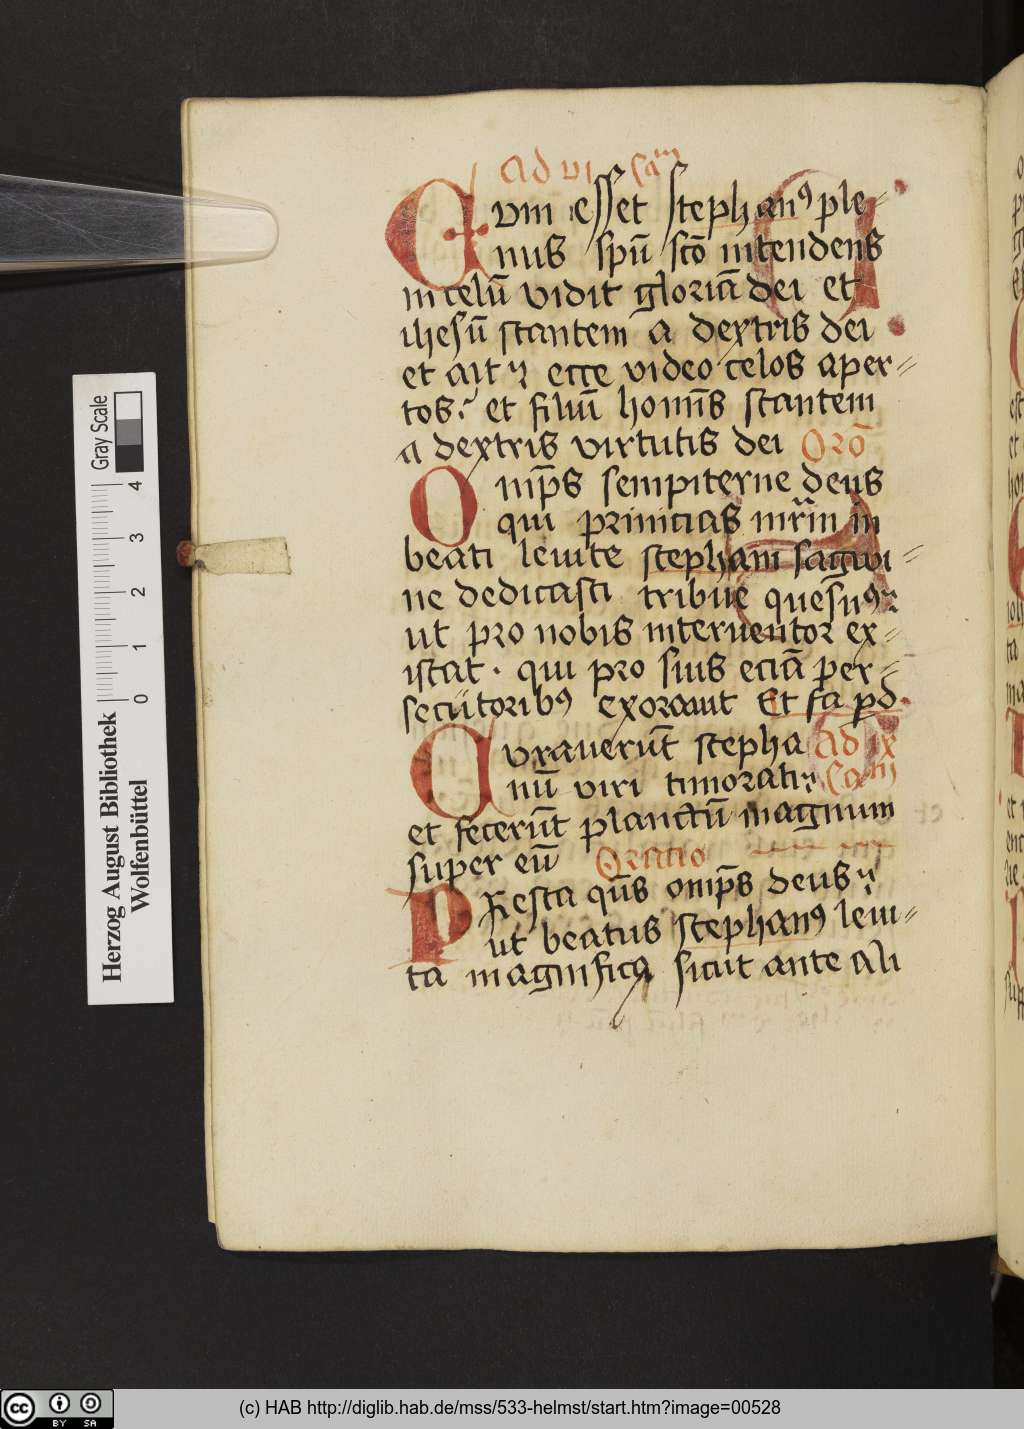 Ad vi Ca᷑
Cvm esset stephanꝰ ple-
nus spū scō intendens
in celū vidit gloriā dei et
ihesū stantem a dextris dei
et ait ecce video celos aper-
tos et filiū hominis stantem
a dextris virtutis dei Orō
Omīps sempiterne deus
qui primicias mr̄m in
beati leuite stephani sagwi-
ne dedicasti tribue quesūꝰ
ut pro nobis interuentor ex-
istat · qui pro suis eciā per-
secutoribꝰ exorauit Et fa pd
Cvrauerūt stepha Ad ix
nū viri timorati Ca
et fecerūt planctū magnum
super eū Oratio
Presta qūs omīps deus
ut beatus stephanꝰ leui-
ta magnificꝰ sicut ante ali
Gray Scale
0 1 2 3 4
Herzog August Bibliothek
Wolfenbüttel
cc BY SA
(c) HAB http://diglib.hab.de/mss/533-helmst/start.htm?image=00528